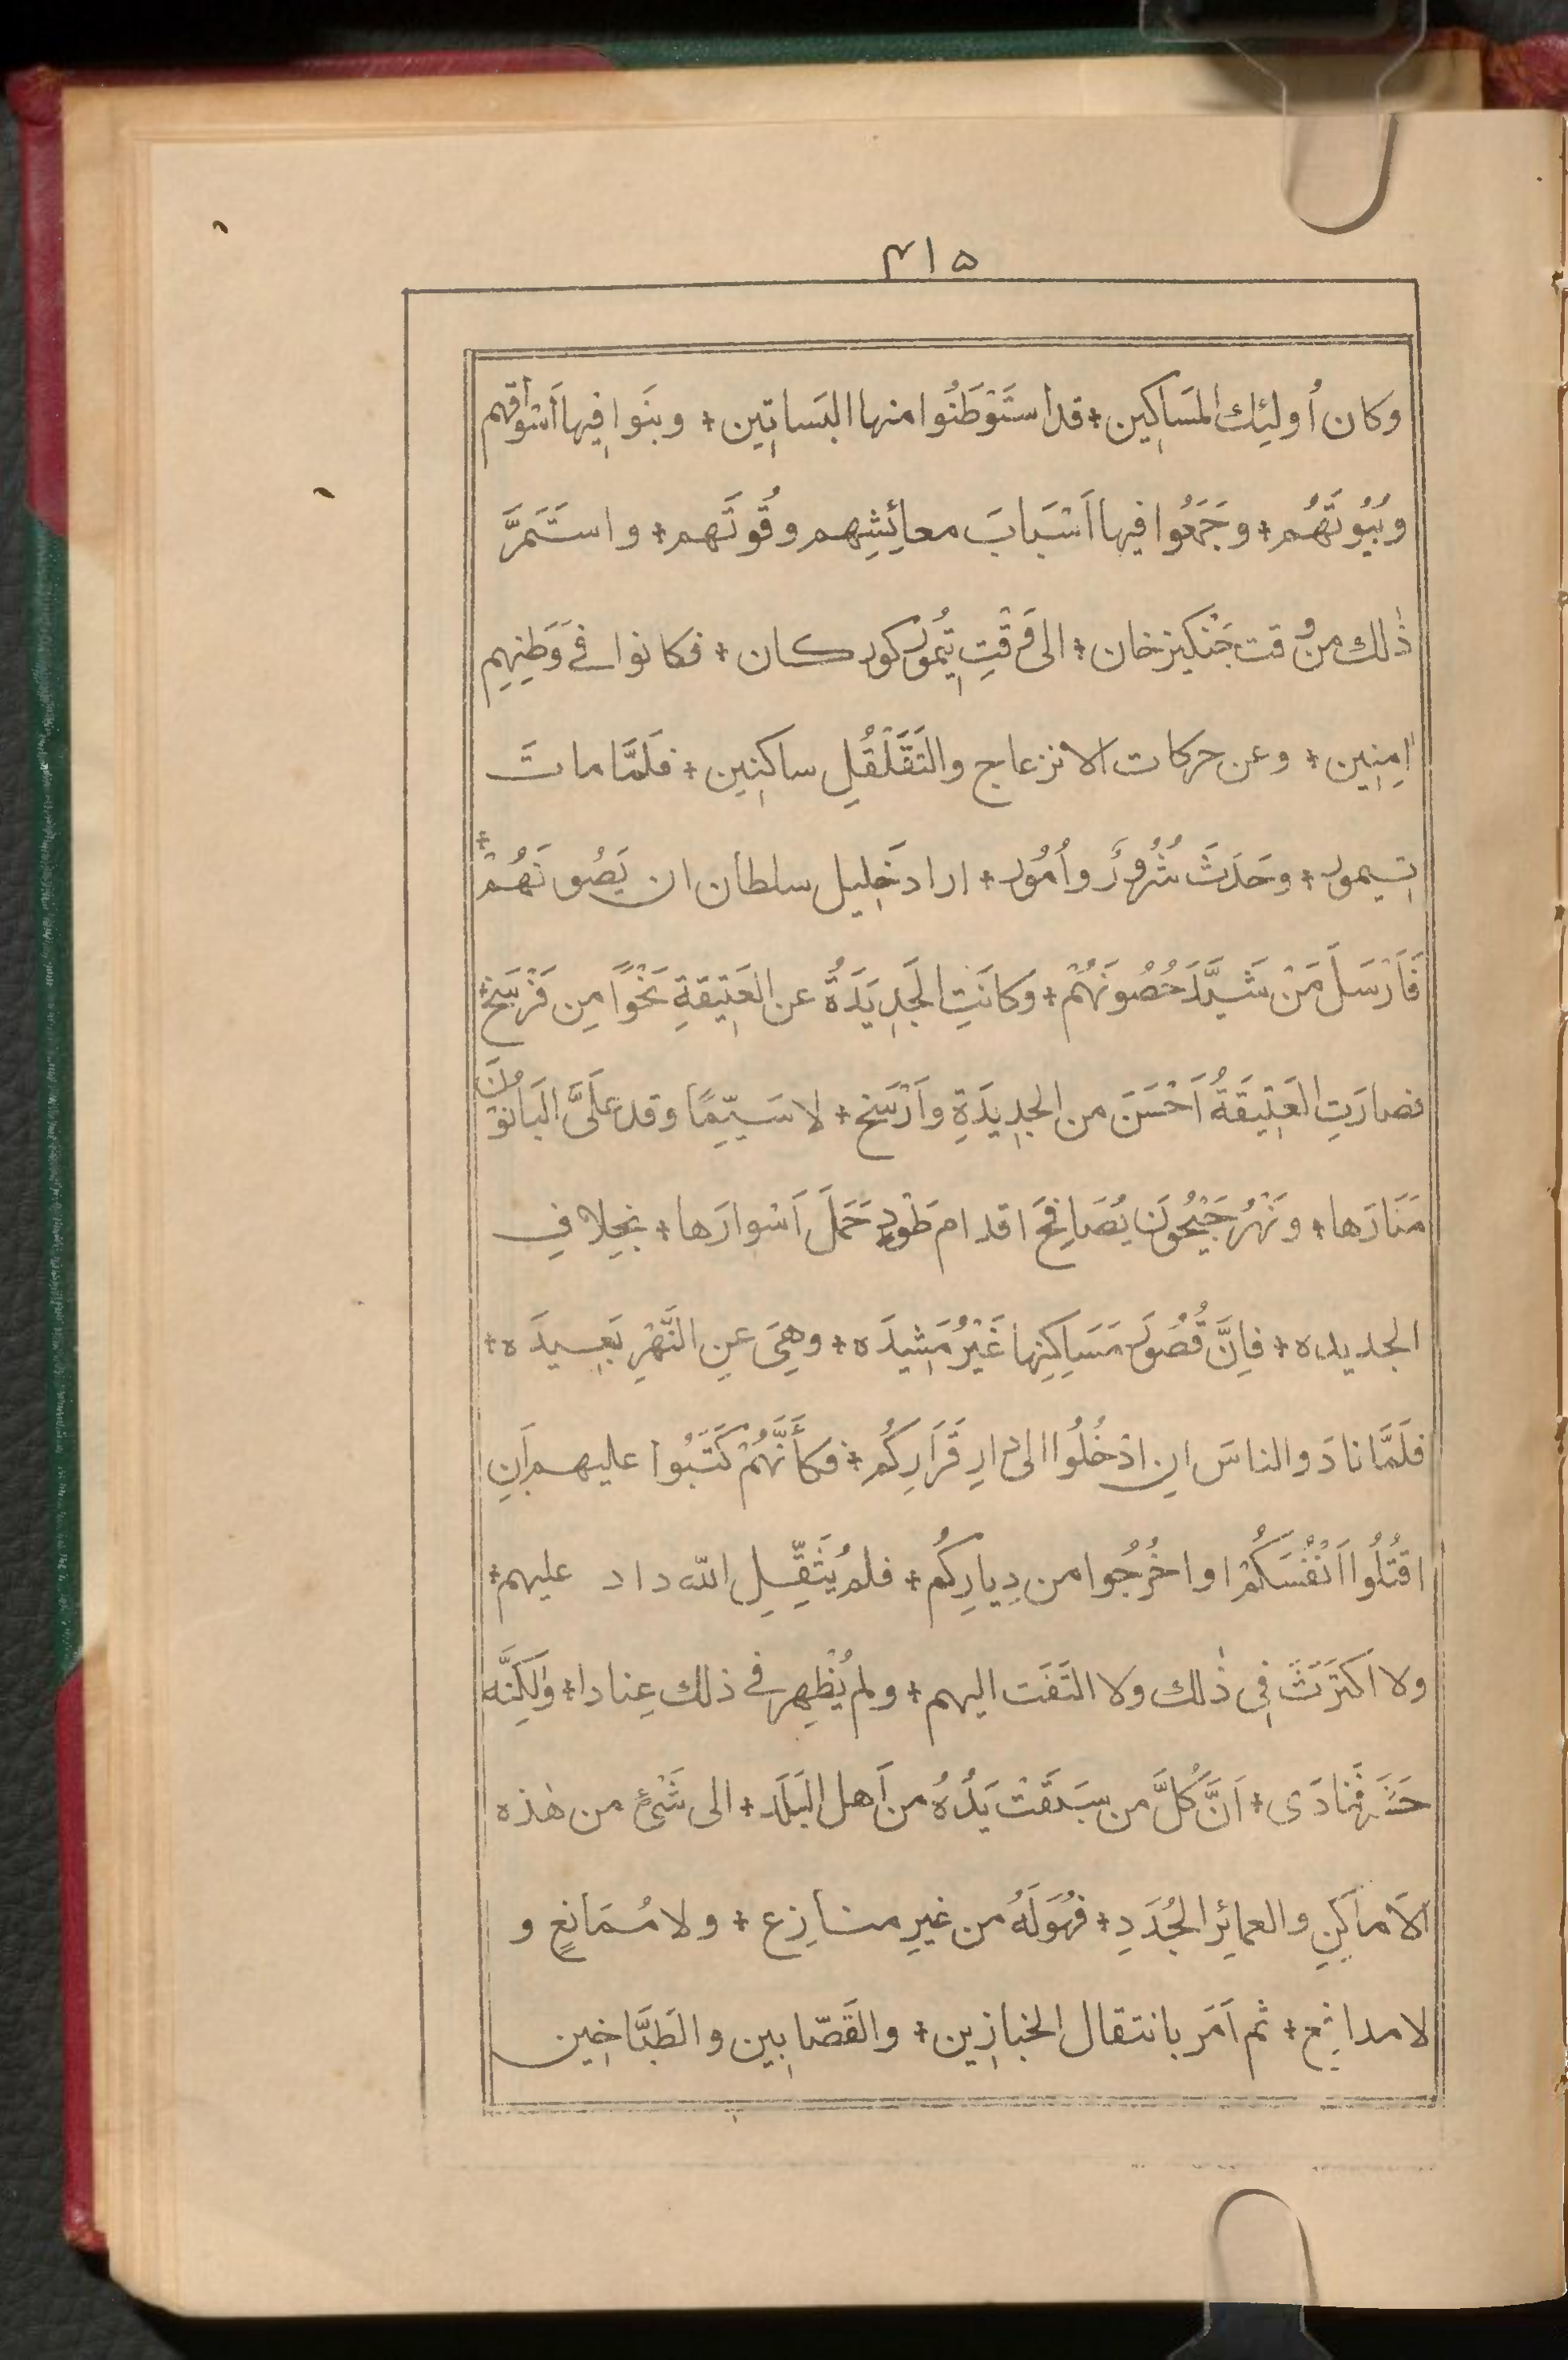 ۴۱۵
وكان أُولئِك المَسَاكِين + قد استَوْطَنُوا منها البَساتِين + وبنَوا فِيها اَسْواقهم
وبُيُوتَهُم + وجَمَعُوا فيها اَسْبَابَ معائِشِهم وقُوتَهم + واستَمَرَّ
ذٰلك من وقت جَنْكيز خان + الى وَقْتِ تِيمُور كوركان + فكانوا فے وَطَنِهِم
اٰمِنِين + وعن حركات الانزعاج والتَقَلْقُلِ ساكنِين + فلَمَّا ماتَ
تِيمور + وحَدَثَ شُرُورٌ واُمُور + اراد خَلِيل سلطان ان يَصُونَهُمْ +
فَاَرْسَلَ مَنْ شَيَّدَ حُصُونَهُمْ + وكانَتِ الجَدِيَدَةُ عن العَتِيقةِ نَحْوًا مِن فَرْسَخ +
فصارَتِ العَتِيقَةُ اَحْسَنَ من الجدِيدَةِ واَرْسَخ + لا سَيِّمًا وقد عَلَىَّ البَانُونَ
مَنَارَها + ونَهْرُ جَيْحُونَ يُصَافِحَ اقدام طَوْدٍ حَمَلَ اَسْوارَها + بخِلافِ
الجديده + فاِنَّ قُصُورَ مَسَاكِنِها غَيْرُ مَشِيدَه + وهِيَ عنِ النَّهْرِ بَعِيدَه +
فلَمَّا نادَوا الناسَ انِ ادْخُلُوا الى دارِ قَرَارِكُم + فكأَنَّهُمْ كَتَبُوا عليهم اَنِ
اقتُلُوا اَنْفُسَكُمْ اواخْرُجُوا من دِيارِكُم + فلم يُثَقِّلِ اللّه داد عليهم +
ولا اكتَرَثَ فِى ذٰلك ولا التَفَت اليهم + ولم يُظْهِر فے ذلك عِنادا + ولٰكِنَّه
فَنادَى + اَنَّ كُلَّ من سَبَقَتْ يَدُهُ من اَهل البَلَد + الى شَىْءٍ من هٰذه
الاَماكِنِ والعمائِر الجُدَدِ + فهُوَ لَهُ من غيرِ منازِع + ولا مُمَانِعٍ و
لا مدافِع + ثم اَمَر بانتقال الخبازِين + والقَصّابِين والطَبَّاخِين